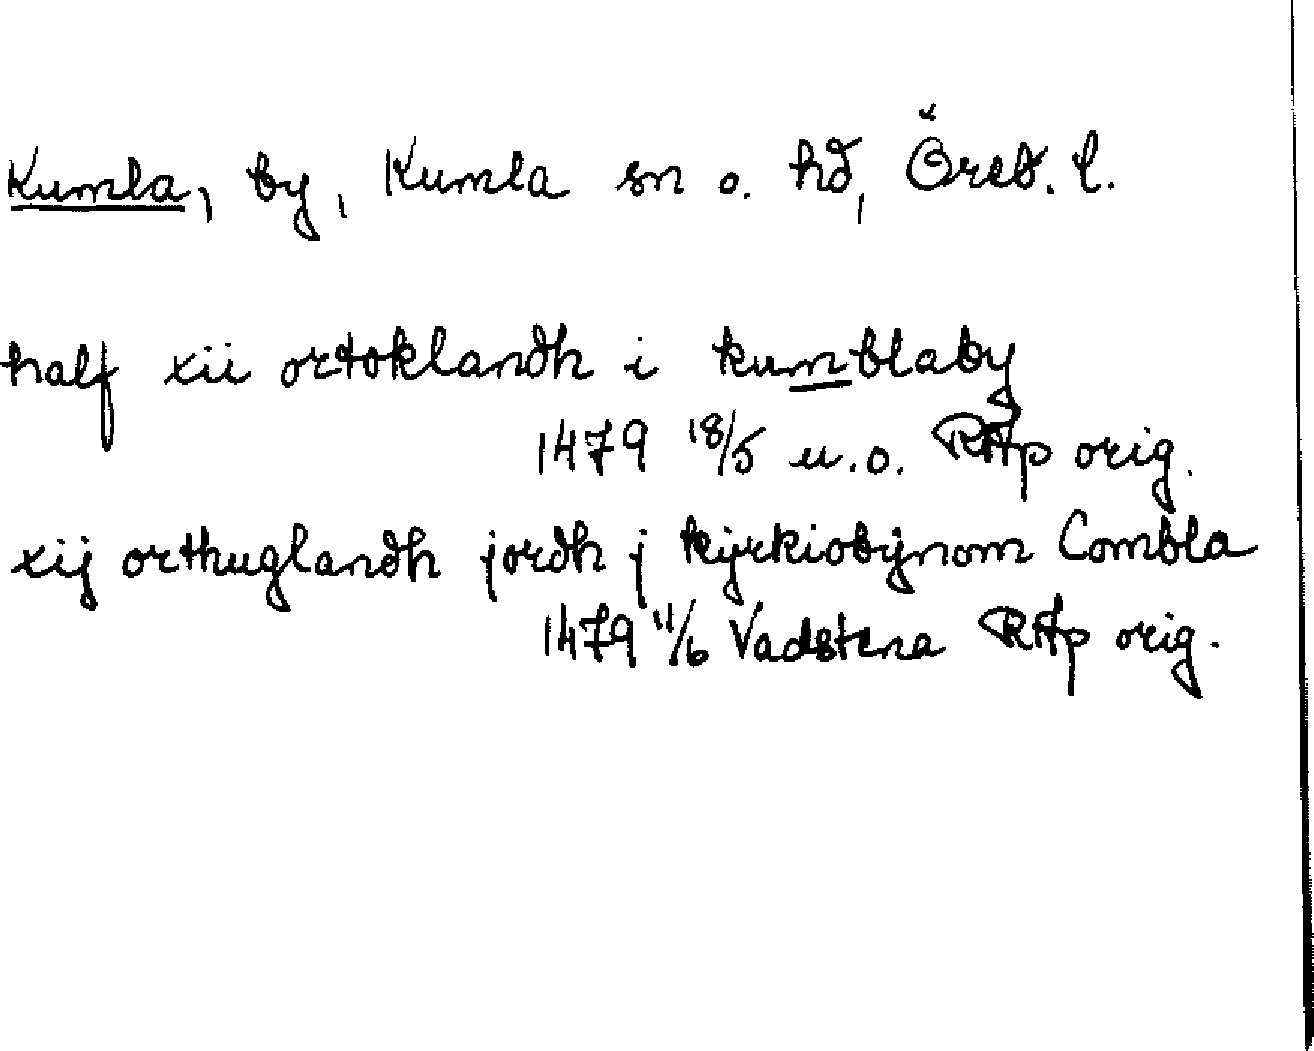 Kumla, by, Kumla sn o. hd, Öreb. l.
half xii ortoklandh i kumblaby
1479 18/5 u.o. RAp orig.
xij orthuglandh jordh j kÿrkiobÿnom Combla
1479 11/6 Vadstena RAp orig.